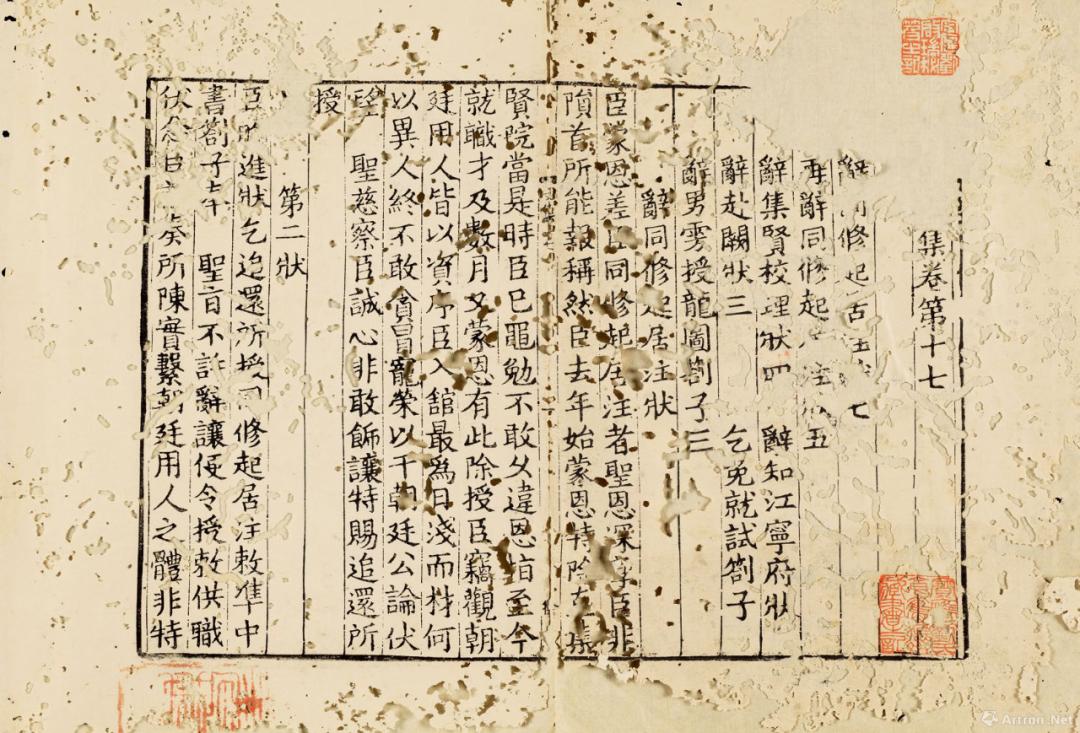 集卷第十七
辭同修起居注狀七
再辭同修起居注狀五
辭集賢校理狀四 辭知江寧府狀
辭赴闕狀三 乞免就試劄子
辭男雱授龍圖劄子三
辭同修起居注狀
臣蒙恩差臣同修起居注者聖恩深厚臣非
隕首所能報稱然臣去年始蒙恩特除直集
賢院當是時臣已黽勉不敢久違恩指至今
就職才及數月又蒙恩有此除授臣竊觀朝
廷用人皆以資序臣入舘最為日淺而材何
以異人終不敢貪冒寵榮以干朝廷公論伏
望 聖慈察臣誠心非敢飾讓特賜追還所
授
第二狀
臣 進狀乞追還所授同修起居注敕準中
書劄子奉 聖旨不許辭讓便令授敕供職
伏念臣 所陳實繫朝廷用人之體非特
Artron.Net